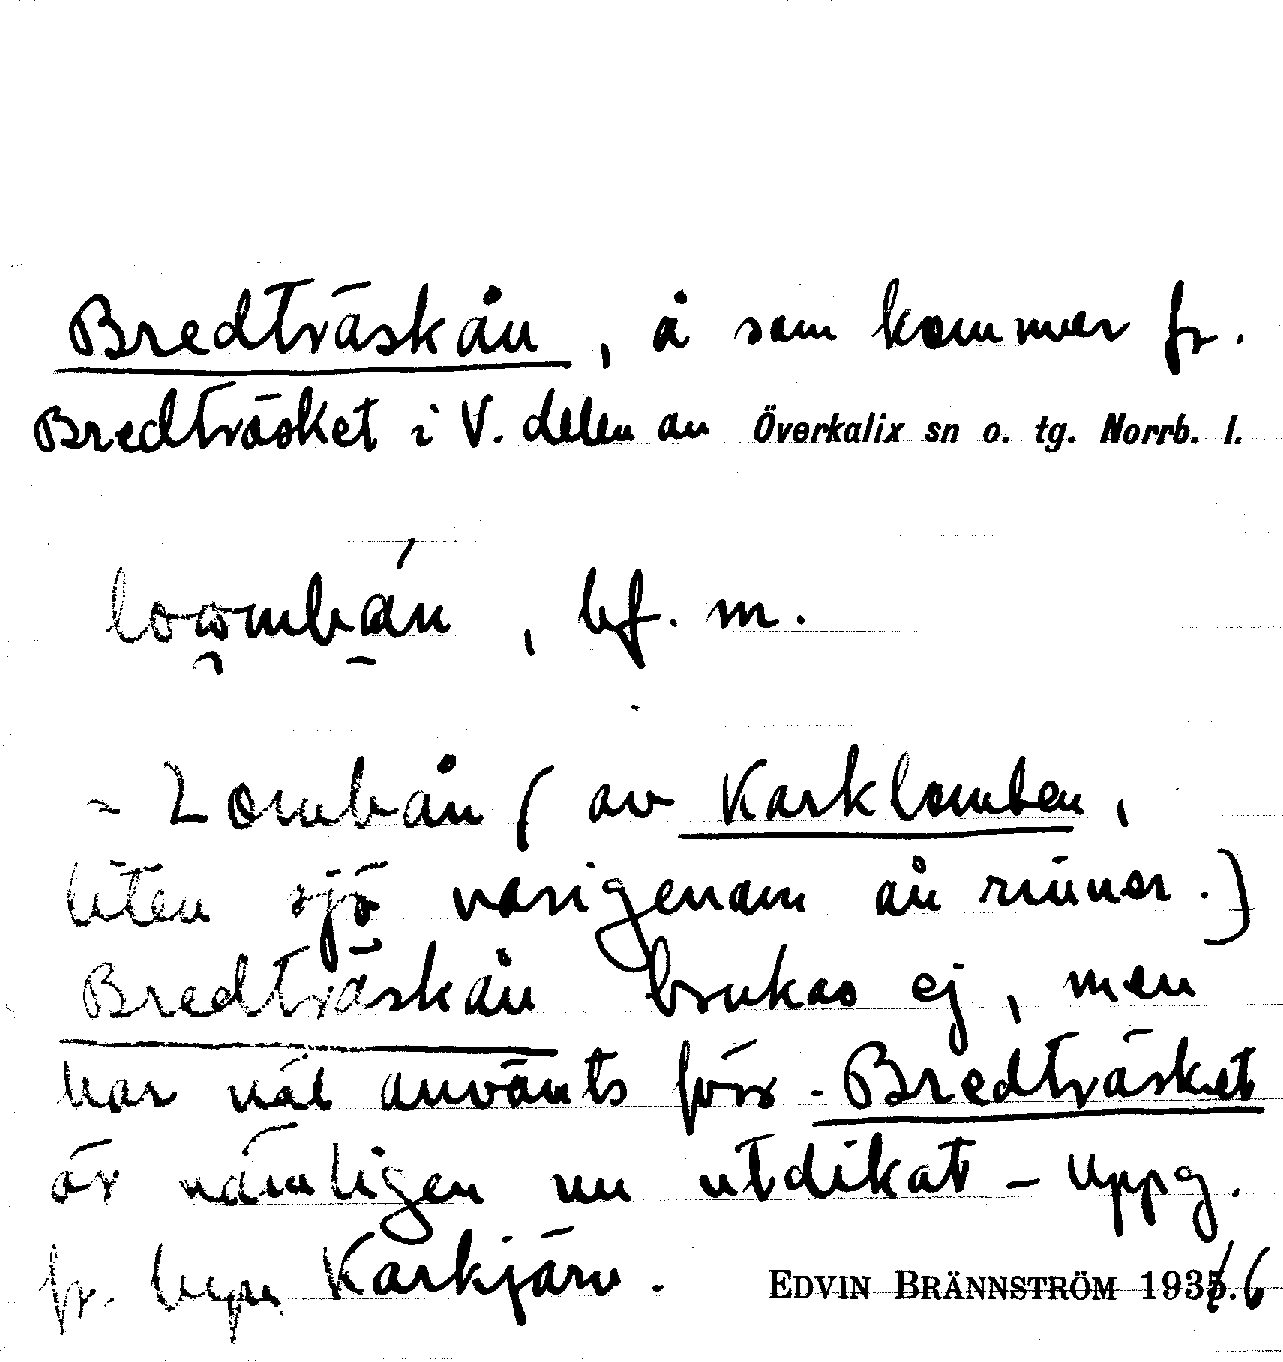 Bredträskån, å som kommer fr.
Bredträsket i V. delen av Överkalix sn o. tg. Norrb. l.
bf. m.
- Lombån (av Karklomben,
liten sjö varigenom ån rinner.)
Bredträskån brukas ej, men
har väl använts förr - Bredträsket
är nämligen nu utdikat - Uppg.
fr. byn Karkjärv.
EDVIN BRÄNNSTRÖM 1935.6